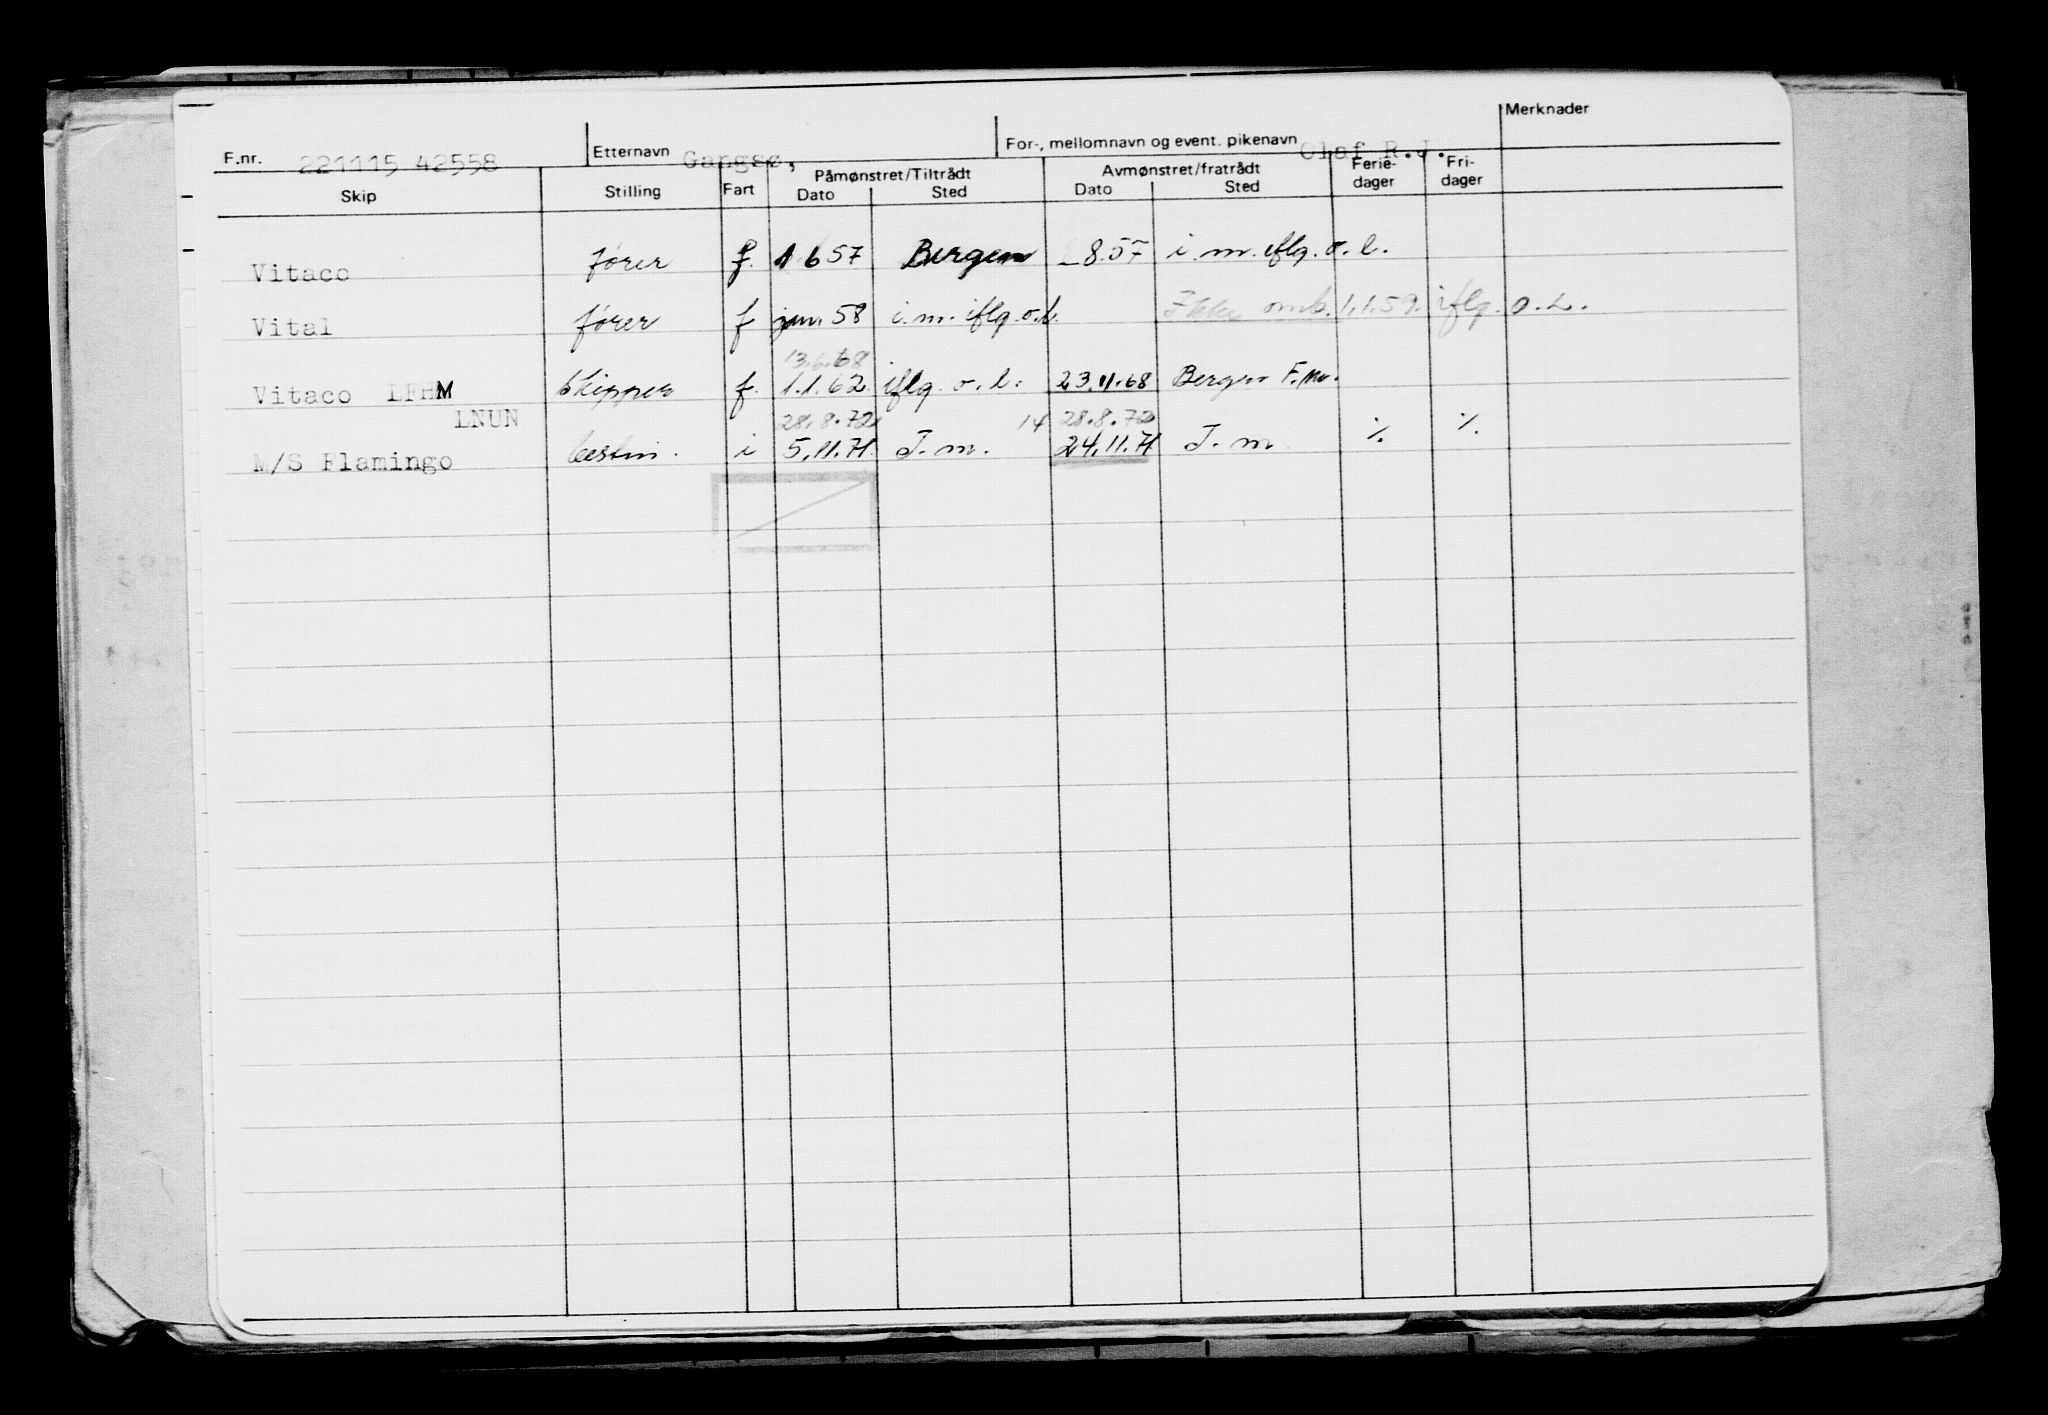 Merknader
F.nr. 221115 42558 Etternavn Gangsø, For-, mellomnavn og event. pikenavn Olaf R.J.
Skip Stilling Fart Påmønstret/Tiltrådt Avmønstret/fratrådt Ferie- Fri-
Dato Sted Dato Sted dager dager
Vitaco fører f. 1 6 57 Bergen – 8.57 i.m. iflg. o.l.
Vital fører f jan. 58 i.m. iflg. o.l. Ikke omb. 1.1.59. iflg. o.l.
13.6.68
Vitaco LFHM Skipper f. 1.1.62. iflg. o.l. 23.11.68 Bergen F.nv.
LNUN 28.8.72 14 28.8.72
M/S Flamingo bestm. i 5.11.71. T.m. 24.11.71 T.m. ⁒ ⁒